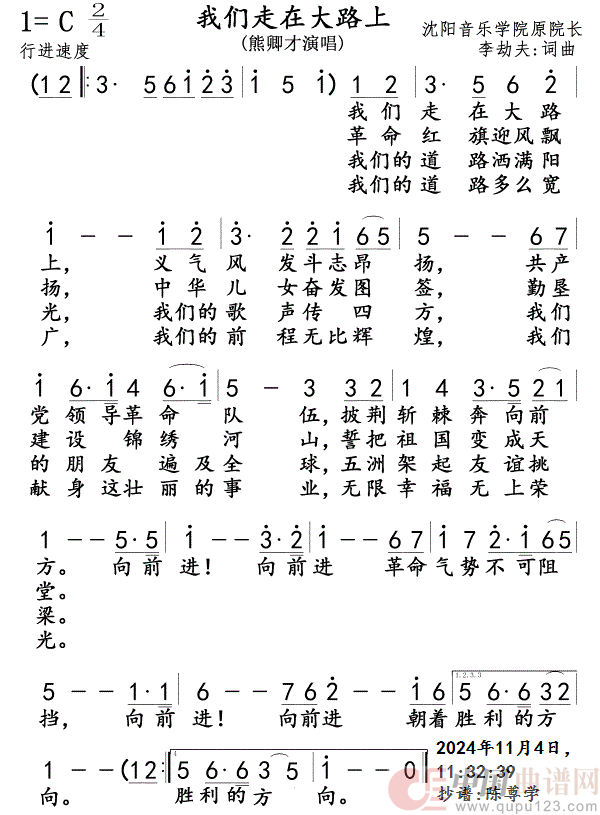 1= C 2/4 我们走在大路上 沈阳音乐学院原院长
行进速度 (熊卿才演唱) 李劫夫:词曲
(1 2 ‖: 3· 5 | 6 1 2 3 | 1 5 1) 1 2 | 3· 5 6 2
我们走 在大路
革命红 旗迎风飘
我们的道 路洒满阳
我们的道 路多么宽
1 - - 1 2 | 3· 2 2 1 6 5 | 5 - - 6 7
上, 义气风 发斗志昂 扬, 共产
扬, 中华儿 女奋发图 签, 勤垦
光, 我们的歌 声传四 方, 我们
广, 我们的前 程无比辉 煌, 我们
1 6· 1 4 6· 1 | 5 - 3 3 2 | 1 4 6· 5 2 1
党领导革命 队 伍, 披荆斩棘奔向前
建设锦绣河 山, 誓把祖国变成天
的朋友遍及全 球, 五洲架起友谊挑
献身这壮丽的事 业, 无限幸福无上荣
1 - - 5· 5 | 1 - - 3· 2 | 1 - - 6 7 | 1 7 2· 1 6 5
方。 向前进! 向前进 革命气势不可阻
堂。
梁。
光。
5 - - 1· 1 | 6 - - 7 6 2 - - 1 6 | 1.2.3.3 5 6· 6 3 2
挡, 向前进! 向前进 朝着胜利的方
1 - - (1 2 :‖ 4. 5 6· 6 3 1 | 1 - 1 - 0 ‖
向。 胜利的方 向。
2024年11月4日,
11:32:39
抄谱:陈尊学
中国曲谱网
www.qupu123.com